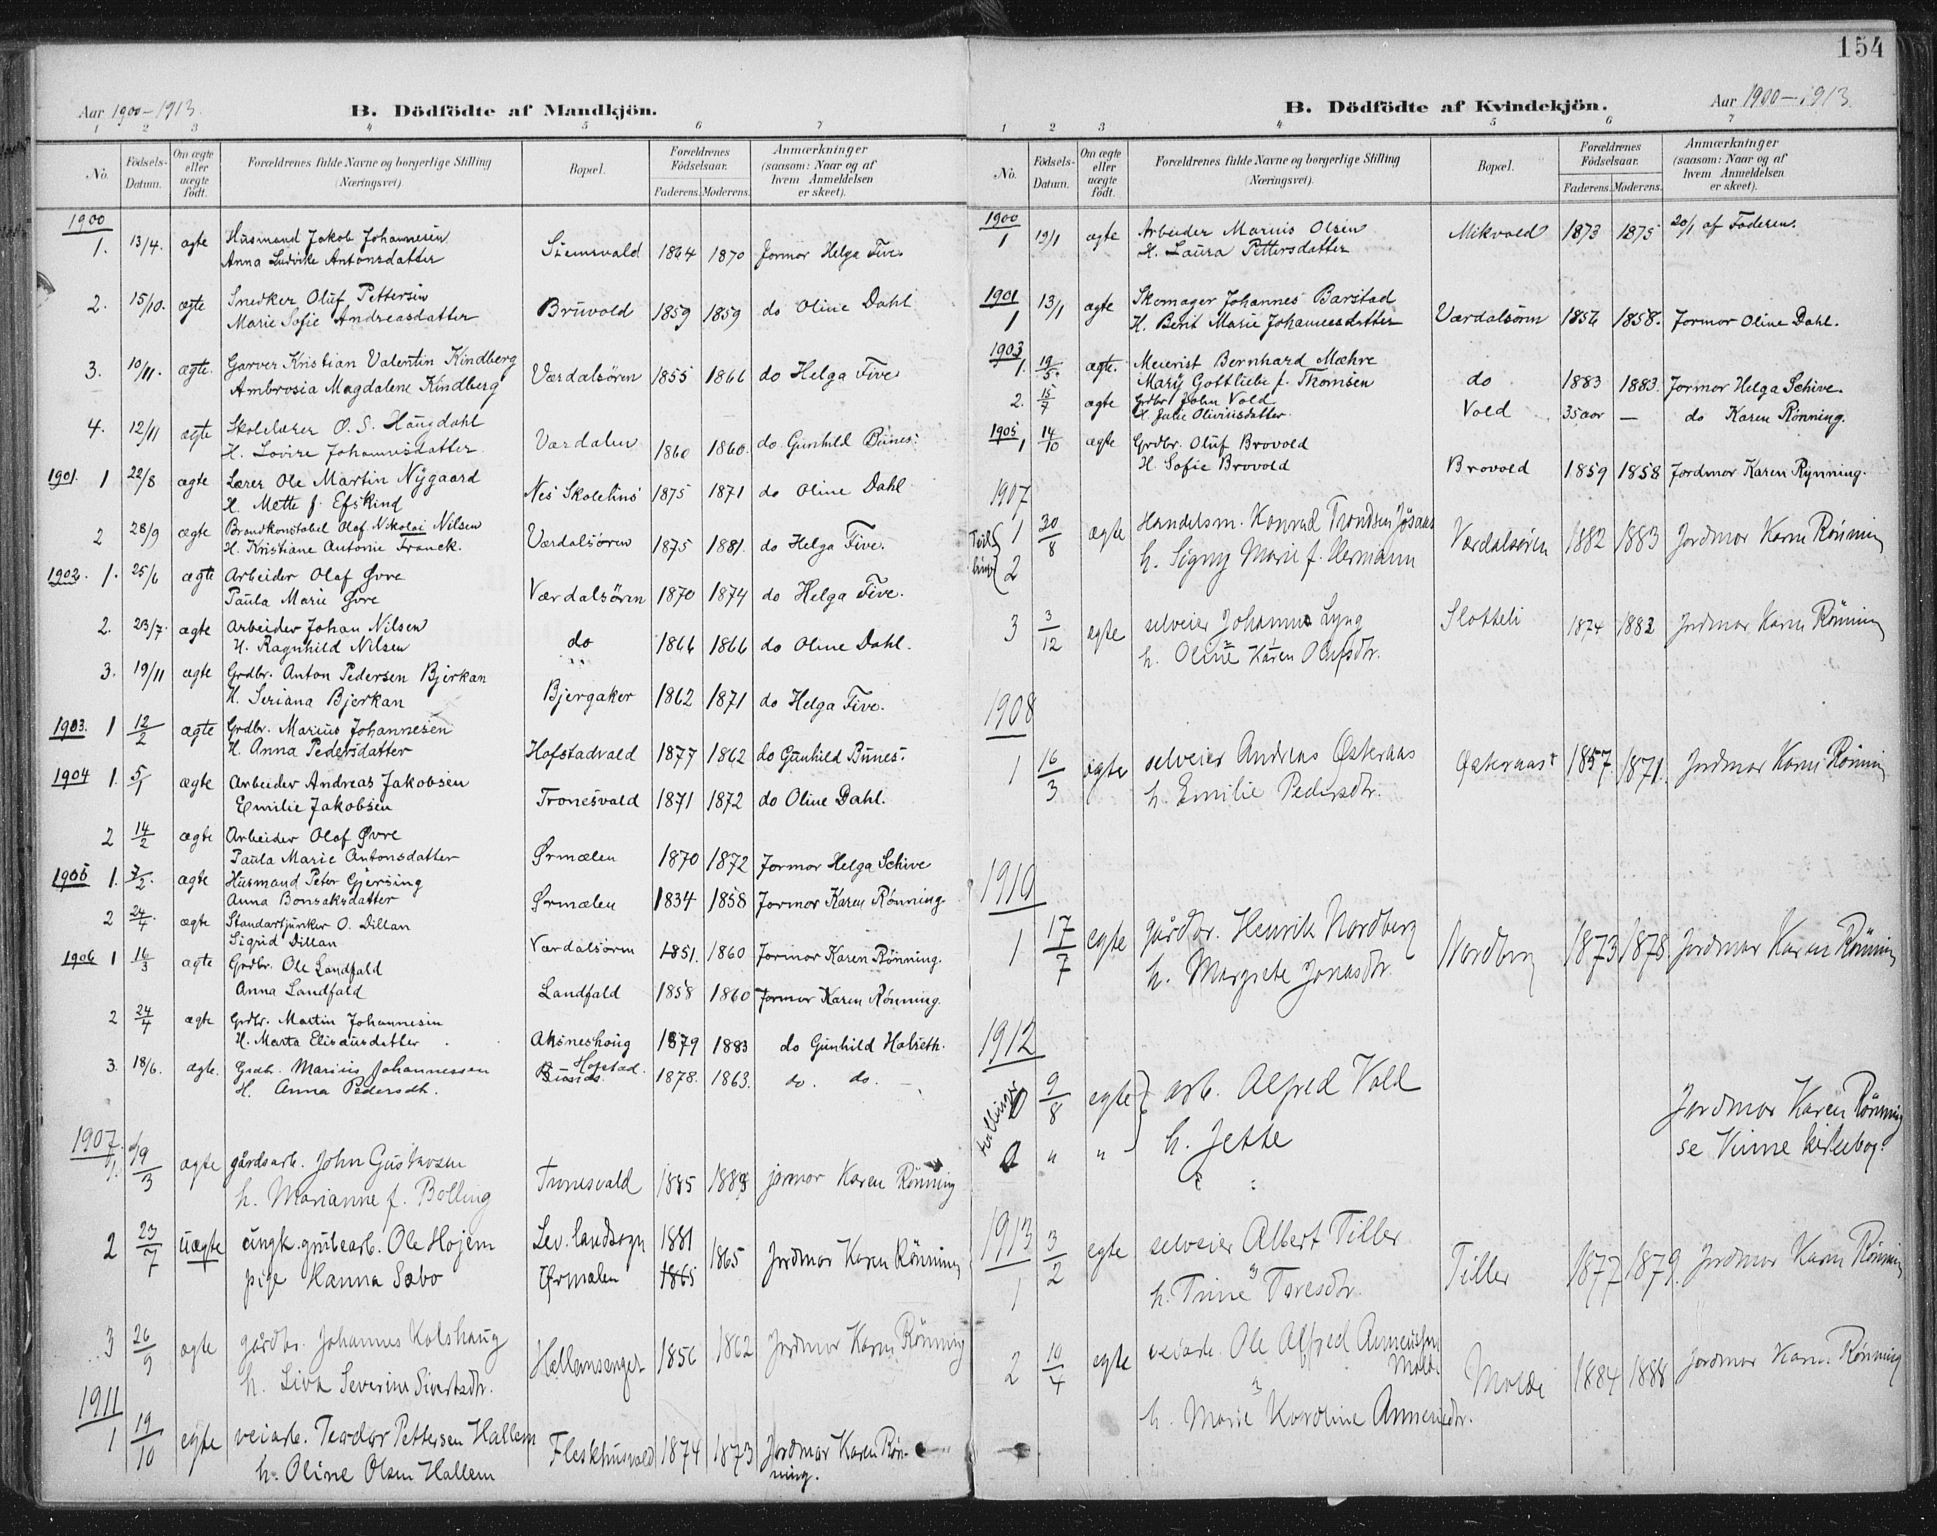 154
Aar 1900-1913.
B. Dödfödte af Mandkjön.
1 2 3 4 5 6 7
No. Födsels-Datum. Om ægte eller uægte födt. Forældrenes fulde Navne og borgerlige Stilling (Næringsvei). Bopæl. Forældrenes Födselsaar. Faderens. Moderens. Anmærkninger (saasom: Naar og af hvem Anmeldelsen er skeet).
1900
1. 13/4. ægte Husmand Jakob Johannesen Stemsvald 1864 1870 Jormor Helga Five.
Anna Ludvike Antonsdatter
2. 15/10. ægte Snedker Oluf Pettersen Bruvold 1859 1859 do Oline Dahl
Marie Sofie Andreasdatter
3. 10/11. ægte. Garver Kristian Valentin Kindberg Værdalsören 1855 1866 do Helga Five
Ambrosia Magdalene Kindberg
4. 12/11 ægte Skolelærer O. S. Haugdahl Værdalen 1860 1860. do Gunhild Bunes.
H. Lovise Johannisdatter
1901. 1 22/8 ægte Lærer Ole Martin Nygaard Nes Skolehus 1875 1871 do Oline Dahl
H. Mette f. Efskind
2 28/9 ægte Brandkonstabel Olaf Nikolai Nilsen Værdalsören 1875 1881. do Helga Five.
H. Kristiane Antonie Franck.
1902. 1. 25/6 ægte Arbeider Olaf Øvre Værdalsören 1870 1874 do Helga Five.
Paula Marie Øvre
2. 23/7. ægte Arbeider Johan Nilsen do 1866 1866 do Oline Dahl.
H. Ragnhild Nilsen
3. 19/11 ægte Grdbr. Anton Pedersen Bjerkan Bjergaker 1862 1871 do Helga Five.
H. Seriana Bjerkan
1903. 1 12/2 ægte Grdbr. Marius Johannesen Hofstadvald 1877 1862 do Gunhild Bunes.
H. Anna Pedersdatter
1904 1. 5/1 ægte Arbeider Andreas Jakobsen Tronesvald 1871 1872 do Oline Dahl.
Emilie Jakobsen
2 14/2 ægte Arbeider Olaf Øvre Ørmælen 1870 1872 Jormor Helga Schive
Paula Marie Antonsdatter
1905 1. 7/2. ægte Husmand Peter Gjersing Ørmælen 1834 1858 Jormor Karen Rønning.
Anna Bonsaksdatter
2 24/4. ægte Standartjunker O. Dillan Værdalsören 1851. 1860 Jormor Karen Rønning.
Sigrid Dillan
1906 1 16/3 ægte Grdbr. Ole Landfald Landfald 1858 1860 Jormor Karen Rønning.
Anna Landfald
2 24/4 ægte Grdbr. Martin Johannesen Aksneshaug 1879 1883 do Gunhild Halseth.
H. Marta Eliseusdatter
3. 18/6. ægte. Grdb. Marius Johannessen Hofstad. 1878. 1863. do. do.
H. Anna Pedersdh.
1907. 1. 19/3 ægte gårdsarb. John Gustavsen Tronesvald 1885 1883 jormor Karen Rönning
h. Marianne f. Bolling
2 23/7 uægte ungk. grubearb. Ole Hojem Lev. landsogn 1881 1865 Jordmor Karen Rönning
pige Hanna Sæbo Ørmælen 1865
3 26/9 ægte gårdbr. Johannes Kolshaug Hallemsenget 1856 1862 Jordmor Karen Rönning
h. Liva Severine Sivertsdtr.
1911
1 19/10 egte veiarb. Teodor Pettersen Hallem Fleskhusvald 1874 1873 Jordmor Karen Rön-
h. Oline Olsen Hallem ning.
Aar 1900-1913.
B. Dödfödte af Kvindekjön.
1 2 3 4 5 6 7
No. Födsels-Datum. Om ægte eller uægte födt. Forældrenes fulde Navne og borgerlige Stilling (Næringsvei). Bopæl. Forældrenes Födselsaar. Faderens. Moderens. Anmærkninger (saasom: Naar og af hvem Anmeldelsen er skeet).
1900
1 19/1 ægte Arbeider Marius Olsen Mikvold 1873 1875 20/1 af Faderen.
H. Laura Pettersdatter
1901
1 13/1 ægte Skomager Johannes Barstad Værdalsörn 1856 1858. Jormor Oline Dahl.
H. Berit Marie Johannesdatter
1903
1. 19/5. ægte. Meierist Bernhard Mæhre do 1883 1883. Jormor Helga Schive.
Mary Gottliebe f. Thomsen
2. 15/7 ægte Grdbr John Vold Vold 35 aar — do Karen Rønning.
H. Julie Oliviusdatter.
1905
1 14/10 ægte Grdbr. Oluf Brovold
H. Sofie Brovold Brovold 1859 1858 Jordmor Karen Rynning.
1907
1 30/8 ægte Handelsm. Konrad Trondsen Jösaas Værdalsören 1882 1883 Jordmor Karen Rönning
2 h. Signy Marie f. Hermann
3 3/12 ægte selveier Johannes Lyng Slotteli 1874 1882 Jordmor Karen Rönning
h. Oline Karen Olufsdtr.
1908
1 16/3 ægte selveier Andreas Østeraas Østeraas 1857. 1871. Jordmor Karen Rönning
h. Emilie Pedersdtr.
1910
1 17/7 egte gårdbr. Henrik Nordberg Nordberg 1873 1878. Jordmor Karen Rönning
h. Margrete Jonasdtr.
1912
tvillinger 9/8 egte arb. Alfred Vold Jordmor Karen Rönning
" " h. Jette se Vinne kirkebog.
1913
1 3/2 egte selveier Albert Tiller Tiller 1877 1879. Jordmor Karen Rönning
h. Trine Toresdtr.
2 10/4 egte veiarb. Ole Alfred Annæussen Molde Molde 1884 1888 Jordmor Karen Rönning
h. Marie Karoline